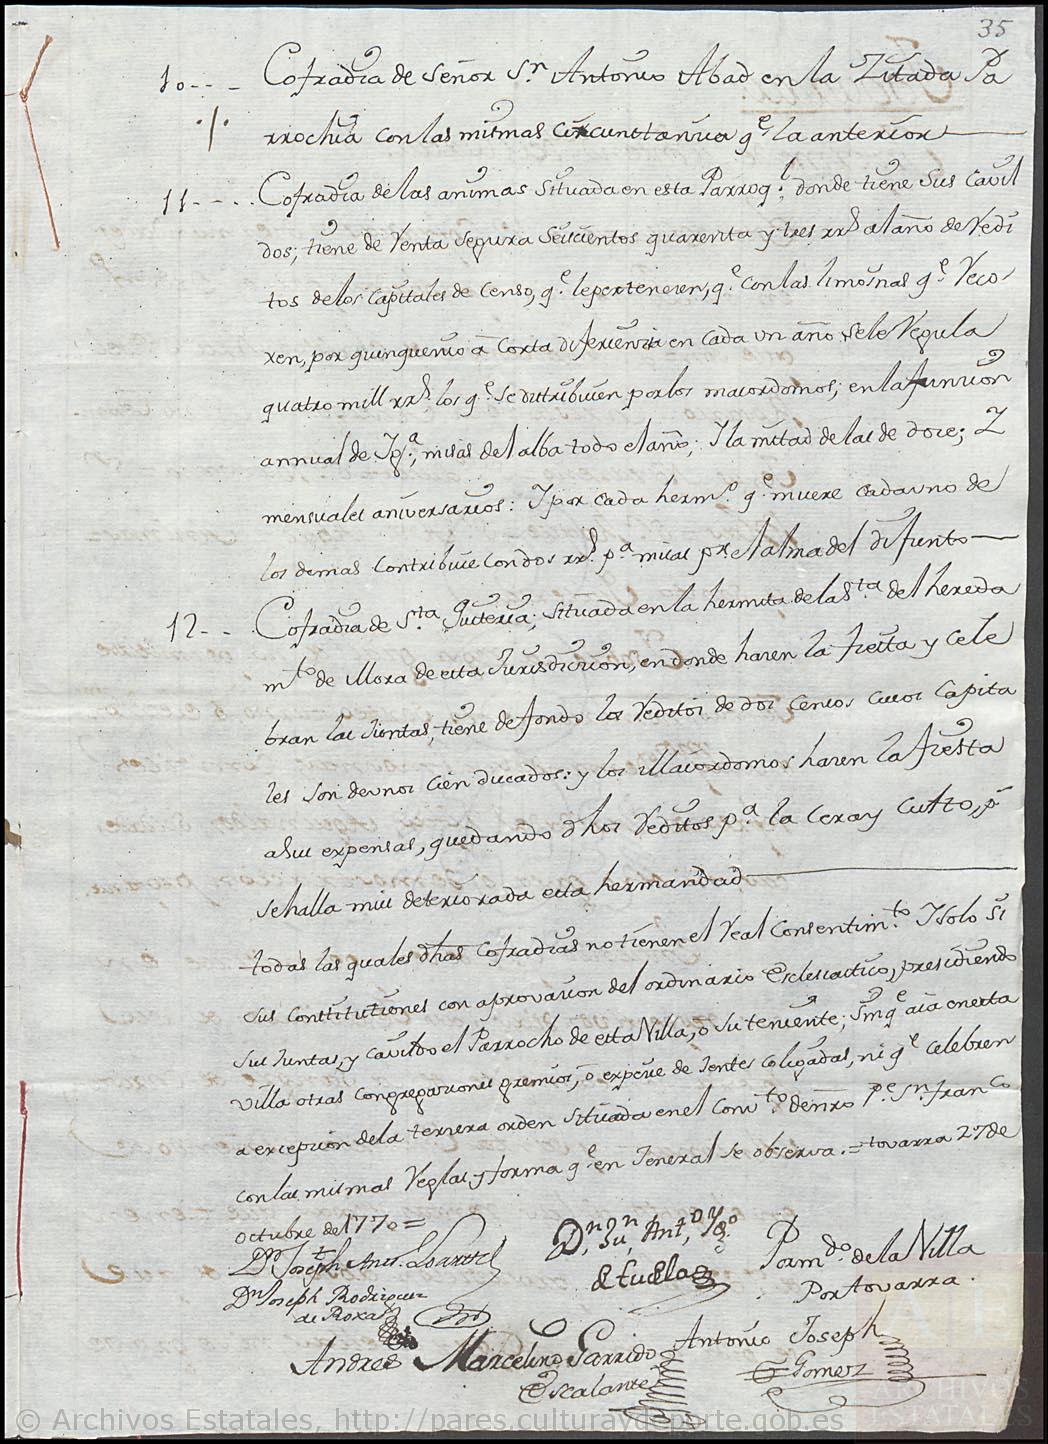 35
10--- Cofradia de Señor Sn Antonio Abad en la Zitada Pa
./. rrochia con las mismas circunstancias qe la anterior
11---- Cofradia de las animas Situada en esta Parroql donde tiene sus cavil
dos; tiene de Venta segura seiscientos quarenta y tres rrs al año de Vedi
tos de los Capitales de Censo, qe le pertenecen, qe con las limosnas qe Veco
xen, por quinquenio a corta diferiencia en cada un año se le Vegula
quatro mill rrs los qe se distribuien por los maiordomos; en la funcion
annual de Yga, misas del alba todo el año; Y la mitad de las de doce; Y
mensuales aniversarios: Y por cada hermo qe muere cada uno de
los demas contribuie con dos rrs pa misas pr el alma del difunto
12-- Cofradia de Sta Quiteria; situada en la hermita de la Sta del hereda
mto de Mora de esta Jurisdiccion, en donde hacen la fiesta y cele
bran las Juntas, tiene de fondo los Veditos de dos Censos cuios Capita
les son de unos cien ducados: y los Maiordomos hacen la fiesta
a sus expensas, quedando dhos Veditos pa la Cera y Culto, pr
se halla mui deteriorada esta hermandad
todas las quales dhas Cofradias no tienen el Veal Consentimto Y solo si
sus constitutiones con aprovacion del ordinario Eclesiastico, presidiendo
sus Juntas, y cavildo el Parrocho de esta Villa, o su teniente; Sin qe aia en esta
villa otras congregaciones gremios, o expecie de Jentes coligadas, ni qe celebren
a excepcion de la terzera orden situada en el Convto de nro Pe Sn Franco
con las mismas Veglas y forma qe en Jeneral se observa.= tovarra 27 de
octubre de 1770=
Dn Joseph Anto
Dn Ju Anto Ygo
Estuella
Pormdo de la Villa
Por tovarra.
Dn Joseph Rodriguez
de Roxas
Andres Marcelino Garrido
Escalante
Antonio Joseph
Gomez
© Archivos Estatales, http://pares.culturaydeporte.gob.es
ARCHIVOS
ESTATALES